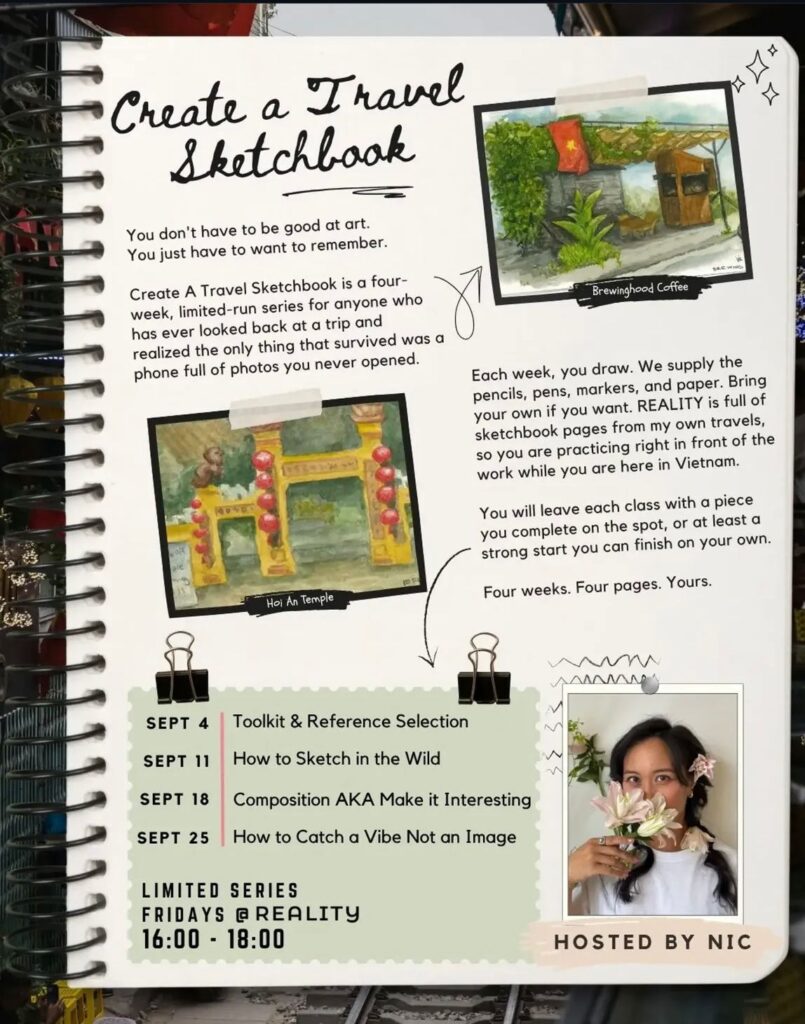 Create a Travel
Sketchbook
You don't have to be good at art.
You just have to want to remember.
Create A Travel Sketchbook is a four-
week, limited-run series for anyone who
has ever looked back at a trip and
realized the only thing that survived was a
phone full of photos you never opened.
Brewinghood Coffee
Each week, you draw. We supply the
pencils, pens, markers, and paper. Bring
your own if you want. REALITY is full of
sketchbook pages from my own travels,
so you are practicing right in front of the
work while you are here in Vietnam.
You will leave each class with a piece
you complete on the spot, or at least a
strong start you can finish on your own.
Four weeks. Four pages. Yours.
Hoi An Temple
SEPT 4 Toolkit & Reference Selection
SEPT 11 How to Sketch in the Wild
SEPT 18 Composition AKA Make it Interesting
SEPT 25 How to Catch a Vibe Not an Image
LIMITED SERIES
FRIDAYS @ REALITY
16:00 - 18:00
HOSTED BY NIC